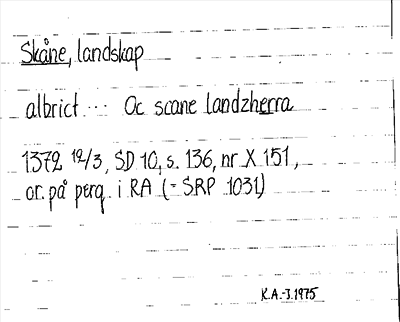 Skåne, landskap
albrict ... Oc scane landzherra
1372 12/3, SD 10, s. 136, nr X 151,
or. på perg. i RA (= SRP 1031)
K.A.-J. 1975